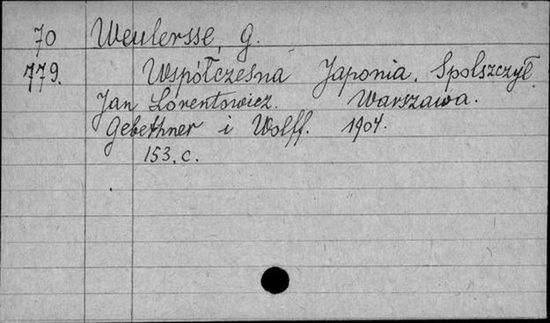 70 Weulersse, G.
779. Współczesna Japonia. Spolszczył
Jan Lorentowicz. Warszawa.
Gebethner i Wolff. 1904.
153. c.